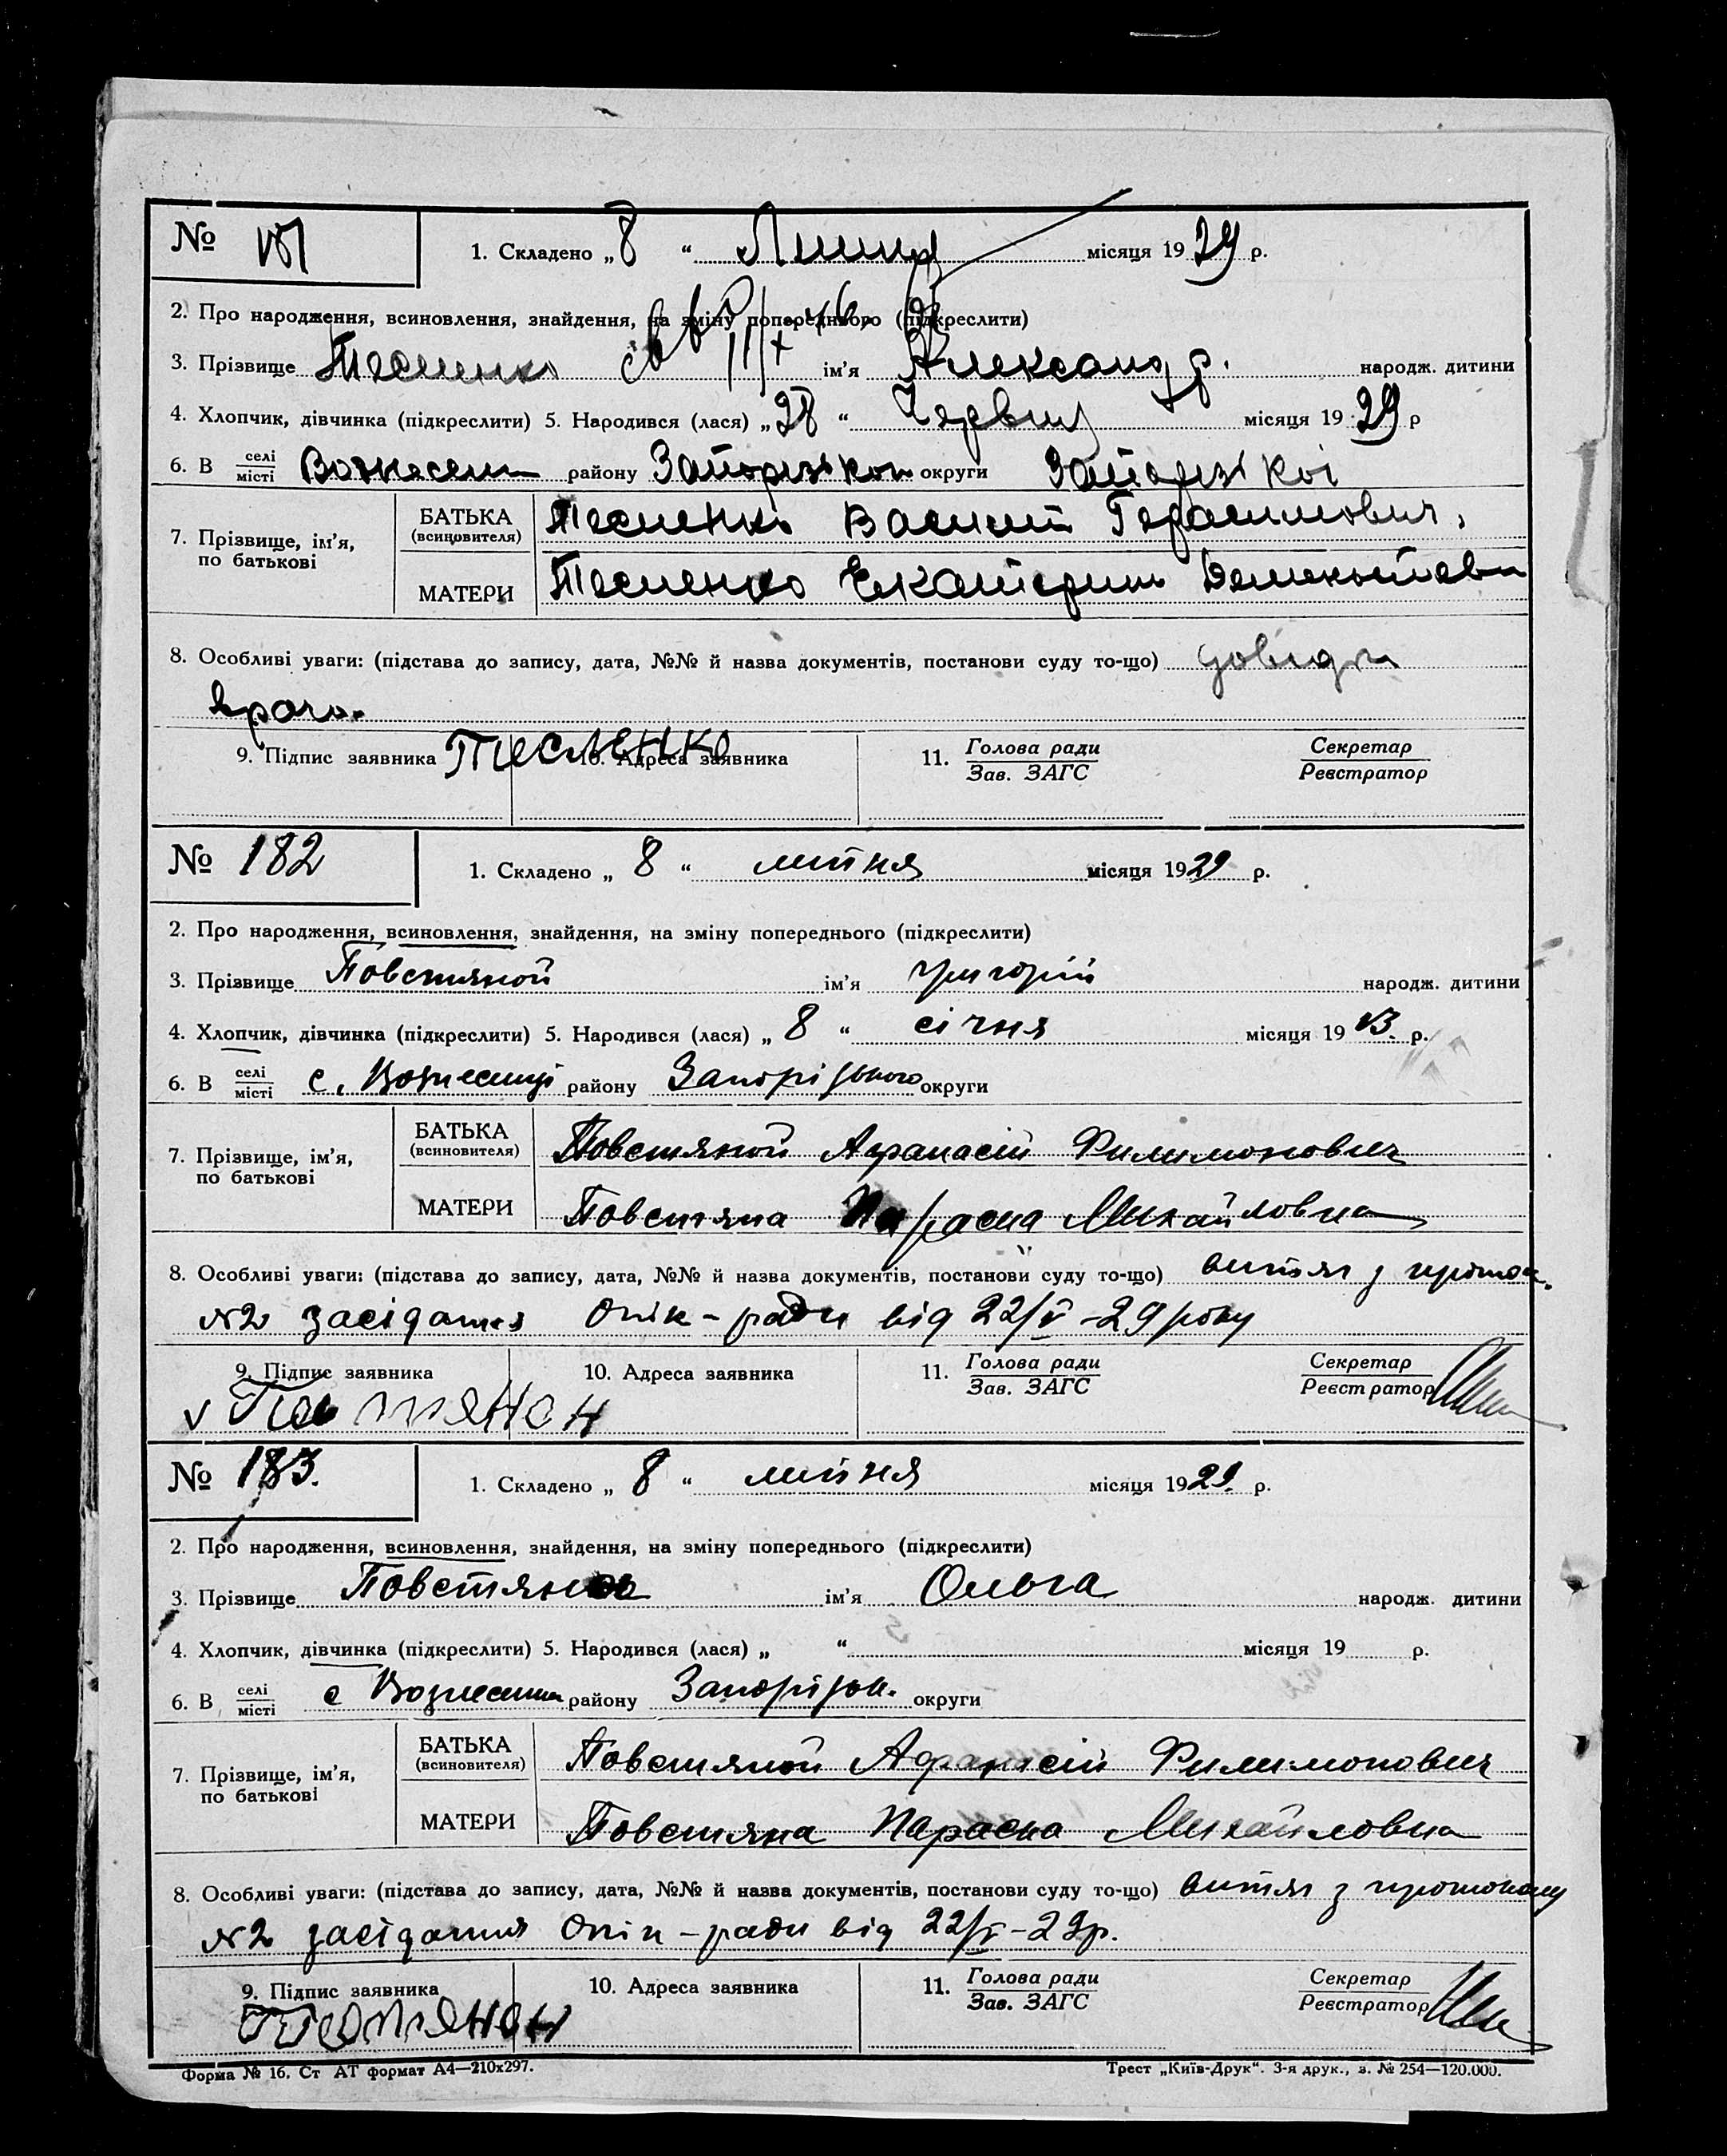 № 181 1. Складено „ 8 “ Липня місяця 1929 р.
2. Про народження, всиновлення, знайдення, на зміну попереднього (підкреслити)
3. Прізвище Тесленко ім'я Александр. народж. дитини
4. Хлопчик, дівчинка (підкреслити) 5. Народився (лася) „ 28 “ Червня місяця 1929 р
6. В селі/місті Вознесен району Запорізького округи Запорізькоі
7. Прізвище, ім'я, по батькові
БАТЬКА (всиновителя) Тесленко Василий Герасимович.
МАТЕРИ Тесленко Екатерина
8. Особливі уваги: (підстава до запису, дата, №№ й назва документів, постанови суду то-що) довідка
врача.
9. Підпис заявника Тесленко 10. Адреса заявника 11. Голова ради/Зав. ЗАГС Секретар/Реєстратор
№ 182 1. Складено „ 8 “ липня місяця 1929 р.
2. Про народження, всиновлення, знайдення, на зміну попереднього (підкреслити)
3. Прізвище Повстяной ім'я Григорій народж. дитини
4. Хлопчик, дівчинка (підкреслити) 5. Народився (лася) „ 8 “ січня місяця 1913. р.
6. В селі/місті с. Вознесенці району Запорізького округи
7. Прізвище, ім'я, по батькові
БАТЬКА (всиновителя) Повстяной Афанасій Филимонович
МАТЕРИ Повстяна Параска Михайловна
8. Особливі уваги: (підстава до запису, дата, №№ й назва документів, постанови суду то-що) витяг з проток.
№2 засідання Опік-ради від 22/V-29 року
9. Підпис заявника 10. Адреса заявника 11. Голова ради/Зав. ЗАГС Секретар/Реєстратор
№ 183. 1. Складено „ 8 “ липня місяця 1929. р.
2. Про народження, всиновлення, знайдення, на зміну попереднього (підкреслити)
3. Прізвище Повстяна ім'я Ольга народж. дитини
4. Хлопчик, дівчинка (підкреслити) 5. Народився (лася) „ “ місяця 19 р.
6. В селі/місті с Вознесенка району Запорізьк. округи
7. Прізвище, ім'я, по батькові
БАТЬКА (всиновителя) Повстяной Афанасій Филимонович
МАТЕРИ Повстяна Параска Михайловна
8. Особливі уваги: (підстава до запису, дата, №№ й назва документів, постанови суду то-що) витяг з протоколу
№2 засідання Опік-ради від 22/V-29р.
9. Підпис заявника 10. Адреса заявника 11. Голова ради/Зав. ЗАГС Секретар/Реєстратор
Форма № 16. Ст АТ формат А4—210х297. Трест „Київ-Друк“. 3-я друк., з. № 254—120.000.